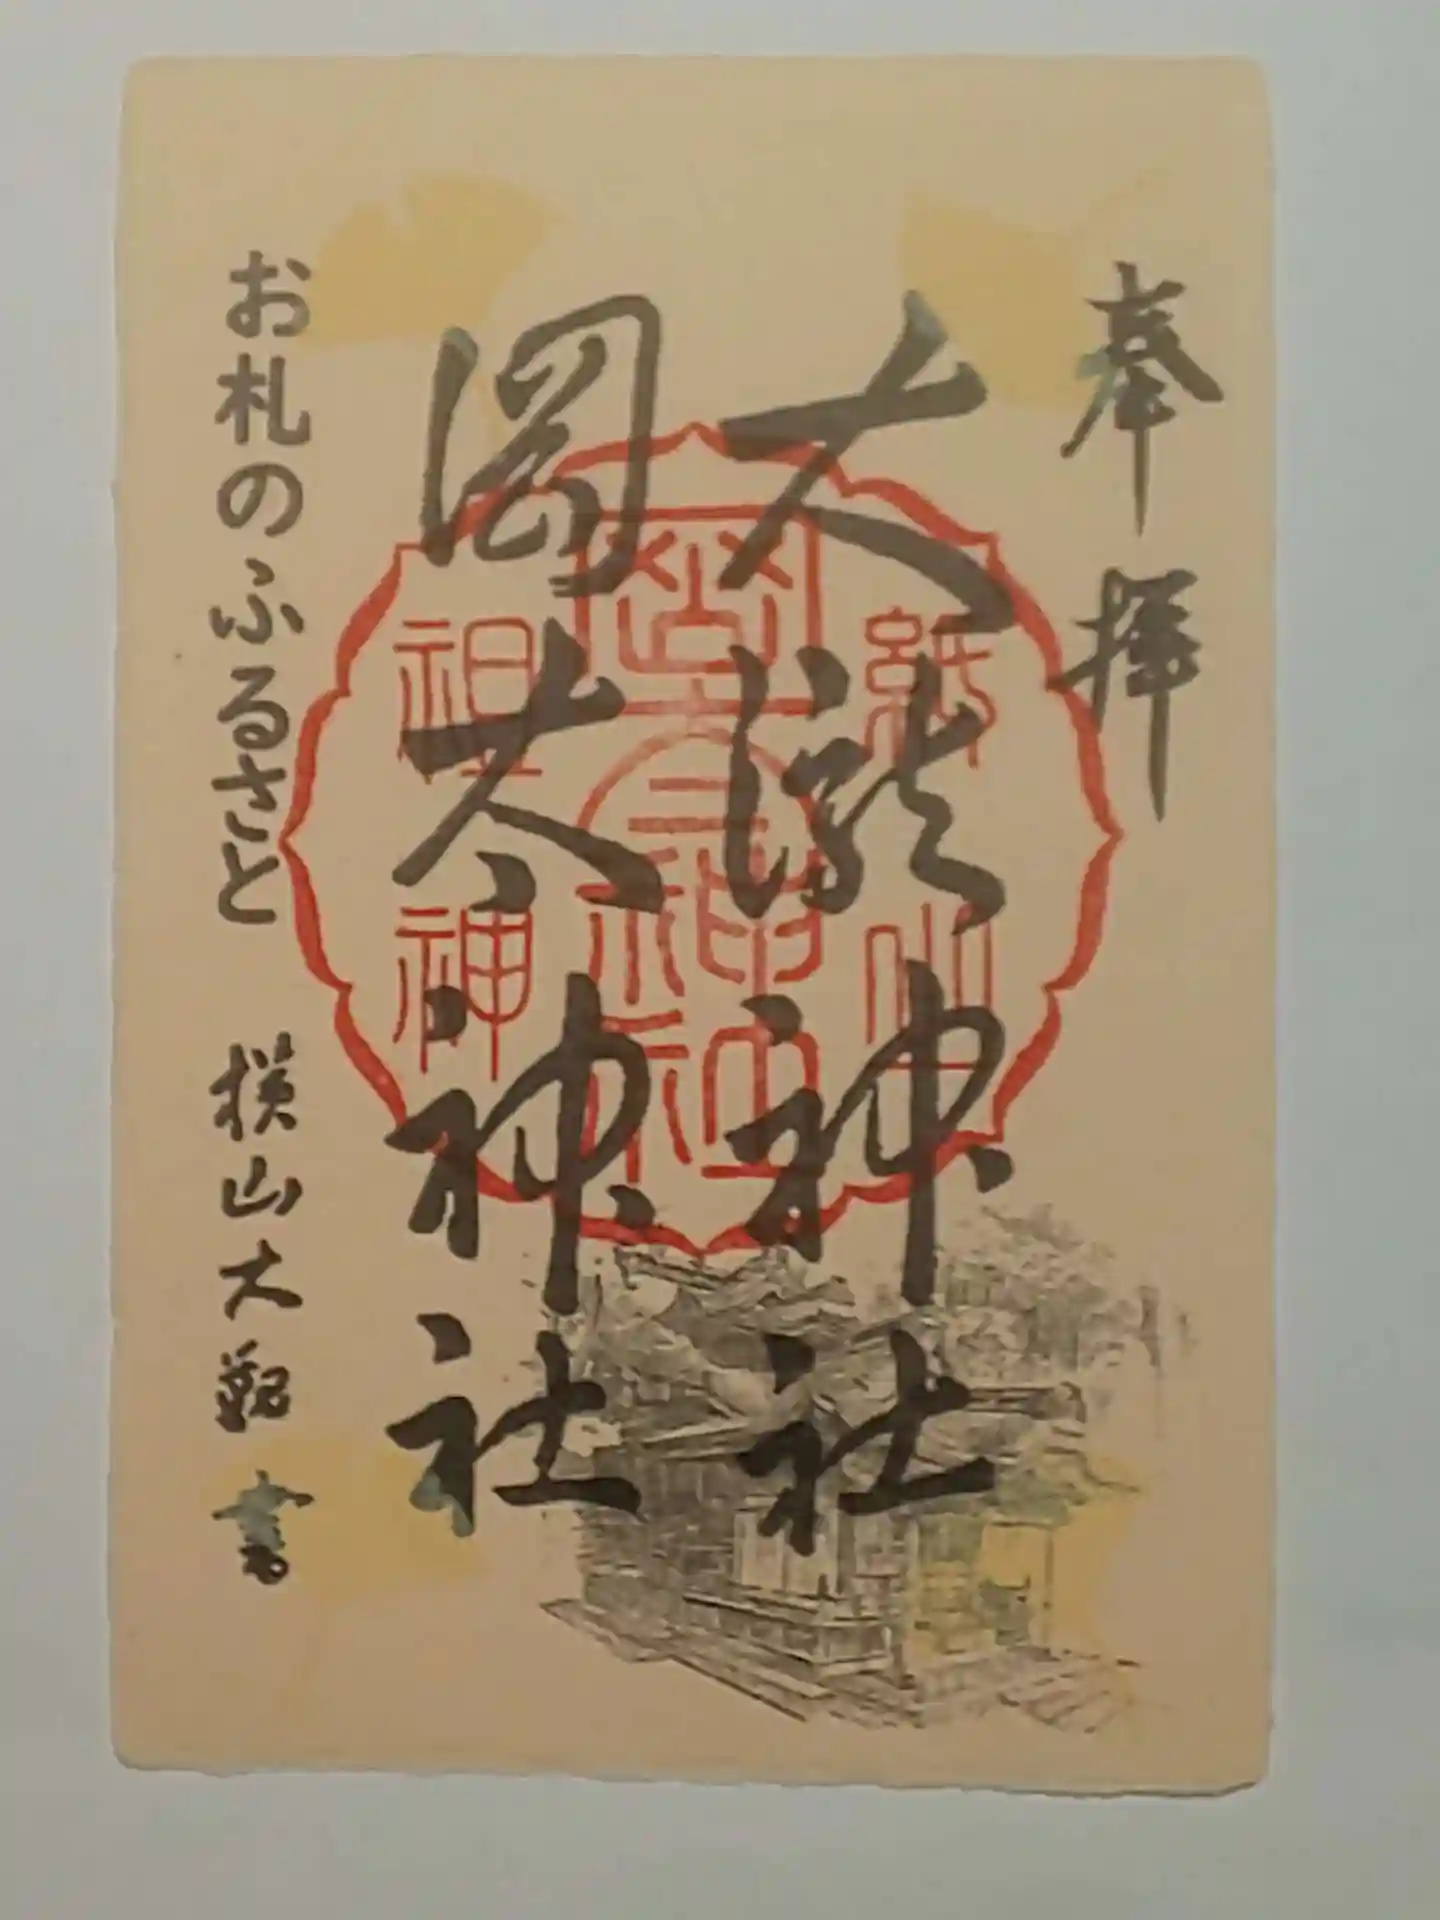 奉拝
大瀧神社
岡太神社
お札のふるさと 横山大観 書
紙山
三神社
祖神